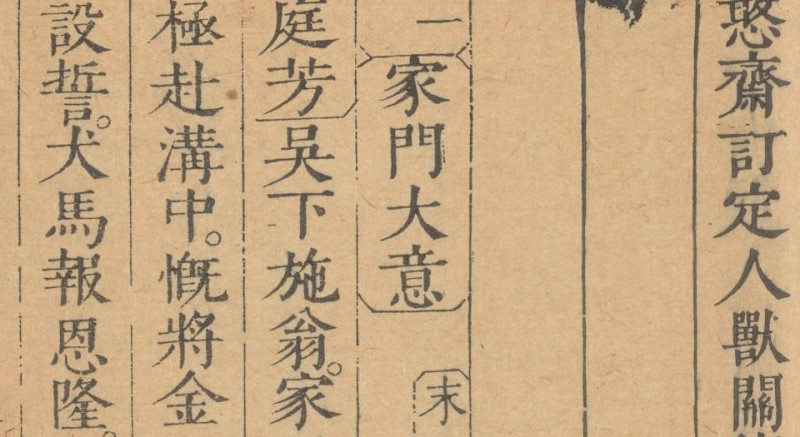 憨齋訂定人獸關
一家門大意 末
庭芳吳下施翁。家
極赴溝中。慨將金
設誓。犬馬報恩隆。